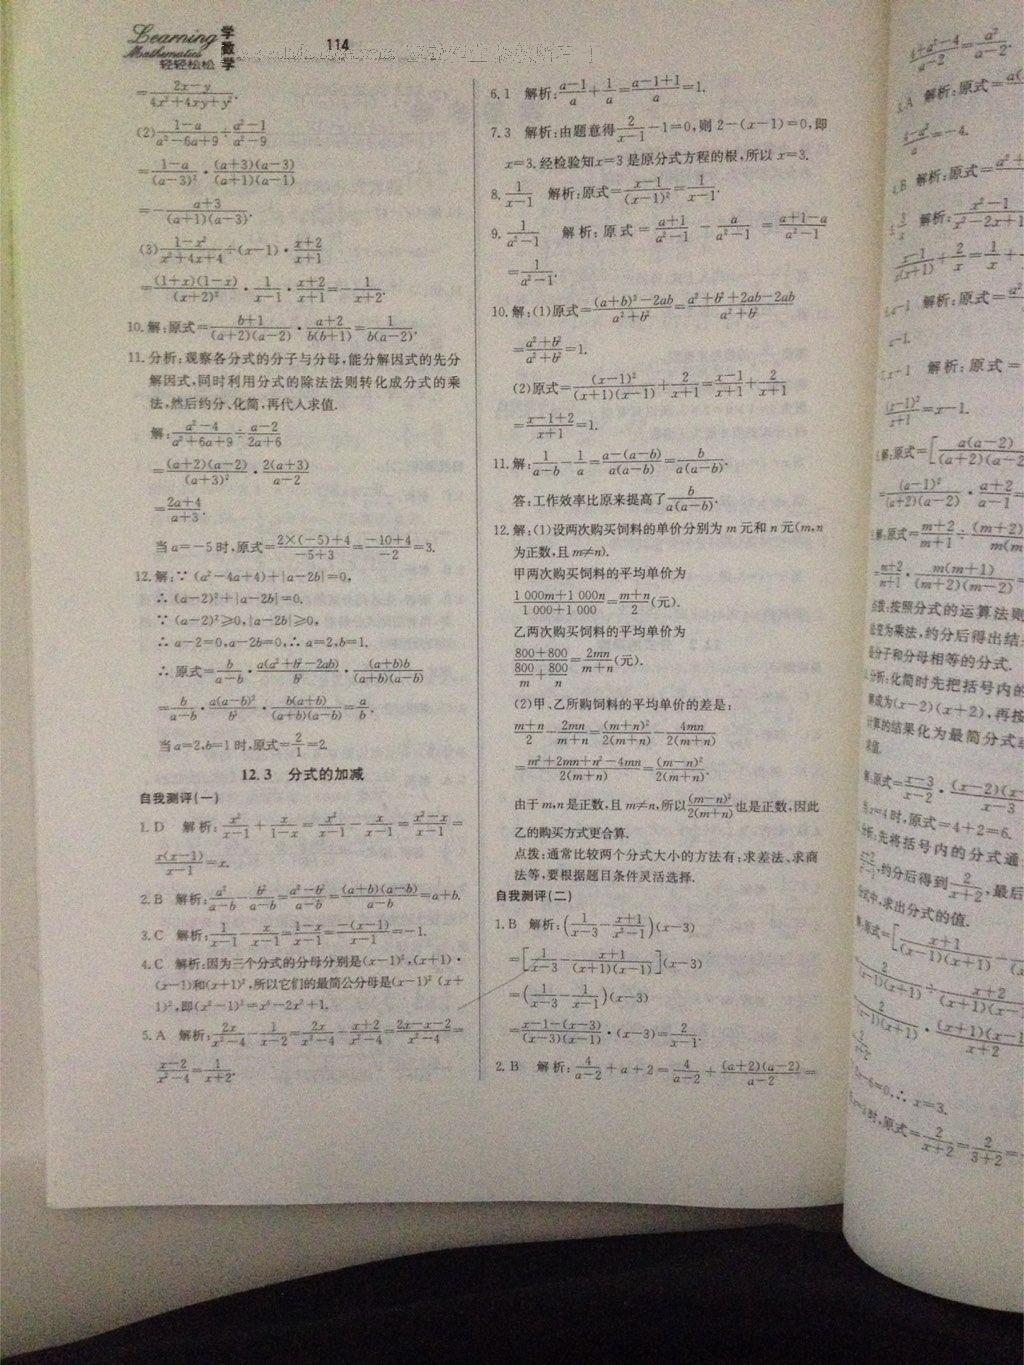 Learning
Mathematics
轻轻松松
学数学
114
=\frac{2x-y}{4x²+4xy+y²}.
(2)\frac{1-a}{a²-6a+9}÷\frac{a²-1}{a²-9}
=\frac{1-a}{(a-3)²}·\frac{(a+3)(a-3)}{(a+1)(a-1)}
=-\frac{a+3}{(a+1)(a-3)}.
(3)\frac{1-x²}{x²+4x+4}÷(x-1)·\frac{x+2}{x+1}
=\frac{(1+x)(1-x)}{(x+2)²}·\frac{1}{x-1}·\frac{x+2}{x+1}=-\frac{1}{x+2}.
10.解:原式=\frac{b+1}{(a+2)(a-2)}·\frac{a+2}{b(b+1)}=\frac{1}{b(a-2)}.
11.分析:观察各分式的分子与分母,能分解因式的先分
解因式,同时利用分式的除法法则转化成分式的乘
法,然后约分、化简,再代人求值.
解:\frac{a²-4}{a²+6a+9}÷\frac{a-2}{2a+6}
=\frac{(a+2)(a-2)}{(a+3)²}·\frac{2(a+3)}{a-2}
=\frac{2a+4}{a+3}.
当a=-5时,原式=\frac{2×(-5)+4}{-5+3}=\frac{-10+4}{-2}=3.
12.解:∵(a²-4a+4)+|a-2b|=0,
∴(a-2)²+|a-2b|=0.
∵(a-2)²≥0,|a-2b|≥0,
∴a-2=0,a-2b=0,∴a=2,b=1.
∴原式=\frac{b}{a-b}·\frac{a(a²+b²-2ab)}{b²}·\frac{(a+b)b}{(a+b)(a-b)}
=\frac{b}{a-b}·\frac{a(a-b)²}{b²}·\frac{b(a+b)}{(a+b)(a-b)}=\frac{a}{b}.
当a=2,b=1时,原式=\frac{2}{1}=2.
12.3 分式的加减
自我测评(一)
1.D 解析:\frac{x²}{x-1}+\frac{x}{1-x}=\frac{x²}{x-1}-\frac{x}{x-1}=\frac{x²-x}{x-1}=
\frac{x(x-1)}{x-1}=x.
2.B 解析:\frac{a²}{a-b}-\frac{b²}{a-b}=\frac{a²-b²}{a-b}=\frac{(a+b)(a-b)}{a-b}=a+b.
3.C 解析:\frac{1}{x-1}-\frac{x}{x-1}=\frac{1-x}{x-1}=\frac{-(x-1)}{x-1}=-1.
4.C 解析:因为三个分式的分母分别是(x-1)²,(x+1)·
(x-1)和(x+1)²,所以它们的最简公分母是(x-1)²(x+
1)²,即(x²-1)²=x⁴-2x²+1.
5.A 解析:\frac{2x}{x²-4}-\frac{1}{x-2}=\frac{2x}{x²-4}-\frac{x+2}{x²-4}=\frac{2x-x-2}{x²-4}=
\frac{x-2}{x²-4}=\frac{1}{x+2}.
6.1 解析:\frac{a-1}{a}+\frac{1}{a}=\frac{a-1+1}{a}=1.
7.3 解析:由题意得\frac{2}{x-1}-1=0,则2-(x-1)=0,即
x=3.经检验知x=3是原分式方程的根,所以x=3.
8.\frac{1}{x-1} 解析:原式=\frac{x-1}{(x-1)²}=\frac{1}{x-1}.
9.\frac{1}{a²-1} 解析:原式=\frac{a+1}{a²-1}-\frac{a}{a²-1}=\frac{a+1-a}{a²-1}
=\frac{1}{a²-1}.
10.解:(1)原式=\frac{(a+b)²-2ab}{a²+b²}=\frac{a²+b²+2ab-2ab}{a²+b²}
=\frac{a²+b²}{a²+b²}=1.
(2)原式=\frac{(x-1)²}{(x+1)(x-1)}+\frac{2}{x+1}=\frac{x-1}{x+1}+\frac{2}{x+1}
=\frac{x-1+2}{x+1}=1.
11.解:\frac{1}{a-b}-\frac{1}{a}=\frac{a-(a-b)}{a(a-b)}=\frac{b}{a(a-b)}.
答:工作效率比原来提高了\frac{b}{a(a-b)}.
12.解:(1)设两次购买饲料的单价分别为m元和n元(m,n
为正数,且m≠n).
甲两次购买饲料的平均单价为
\frac{1 000m+1 000n}{1 000+1 000}=\frac{m+n}{2}(元).
乙两次购买饲料的平均单价为
\frac{800+800}{\frac{800}{m}+\frac{800}{n}}=\frac{2mn}{m+n}(元).
(2)甲、乙所购饲料的平均单价的差是:
\frac{m+n}{2}-\frac{2mn}{m+n}=\frac{(m+n)²}{2(m+n)}-\frac{4mn}{2(m+n)}
=\frac{m²+2mn+n²-4mn}{2(m+n)}=\frac{(m-n)²}{2(m+n)}.
由于m,n是正数,且m≠n,所以\frac{(m-n)²}{2(m+n)}也是正数,因此
乙的购买方式更合算.
点拨:通常比较两个分式大小的方法有:求差法、求商
法等,要根据题目条件灵活选择.
自我测评(二)
1.B 解析:(\frac{1}{x-3}-\frac{x+1}{x²-1})(x-3)
=[\frac{1}{x-3}-\frac{x+1}{(x+1)(x-1)}](x-3)
=(\frac{1}{x-3}-\frac{1}{x-1})(x-3)
=\frac{x-1-(x-3)}{(x-3)(x-1)}·(x-3)=\frac{2}{x-1}.
2.B 解析:\frac{4}{a-2}+a+2=\frac{4}{a-2}+\frac{(a+2)(a-2)}{a-2}=
\frac{4+a²-4}{a-2}=\frac{a²}{a-2}.
A 解析:原式=
=-4.
B 解析:原式=
解析:\frac{x²-1}{x²-2x+1}
解析:原式=
x-1 解析:原式=
\frac{(x-1)²}{x+1}=x-1.
原式=[\frac{a(a-2)}{(a+2)(a-2
=\frac{(a-1)²}{(a+2)(a-2)}·\frac{a+2}{a-1}=
原式=\frac{m+2}{m+1}÷\frac{(m+2)}{m(m
=\frac{m+2}{m+1}·\frac{m(m+1)}{(m+2)(m-2)}=
拨:按照分式的运算法则
变为乘法,约分后得出结
分子和分母相等的分式.
分析:化简时先把括号内的
成为(x-2)(x+2),再按
计算的结果化为最简分式
求值.
原式=\frac{x-3}{x-2}·\frac{(x-2)(x}{x-3}
x=4时,原式=4+2=6.
析:先将括号内的分式通
约分后得到\frac{2}{x+2},最后
中,求出分式的值.
原式=[\frac{x+1}{(x-1)(x+1)}-
\frac{2}{(x-1)(x+1)}÷\frac{x+2}{(x+1)(x-1
\frac{2}{(x-1)(x+1)}·\frac{(x+1)(x-1}{x+2}
-6=0,∴x=3.
时,原式=\frac{2}{x+2}=\frac{2}{3+2}=